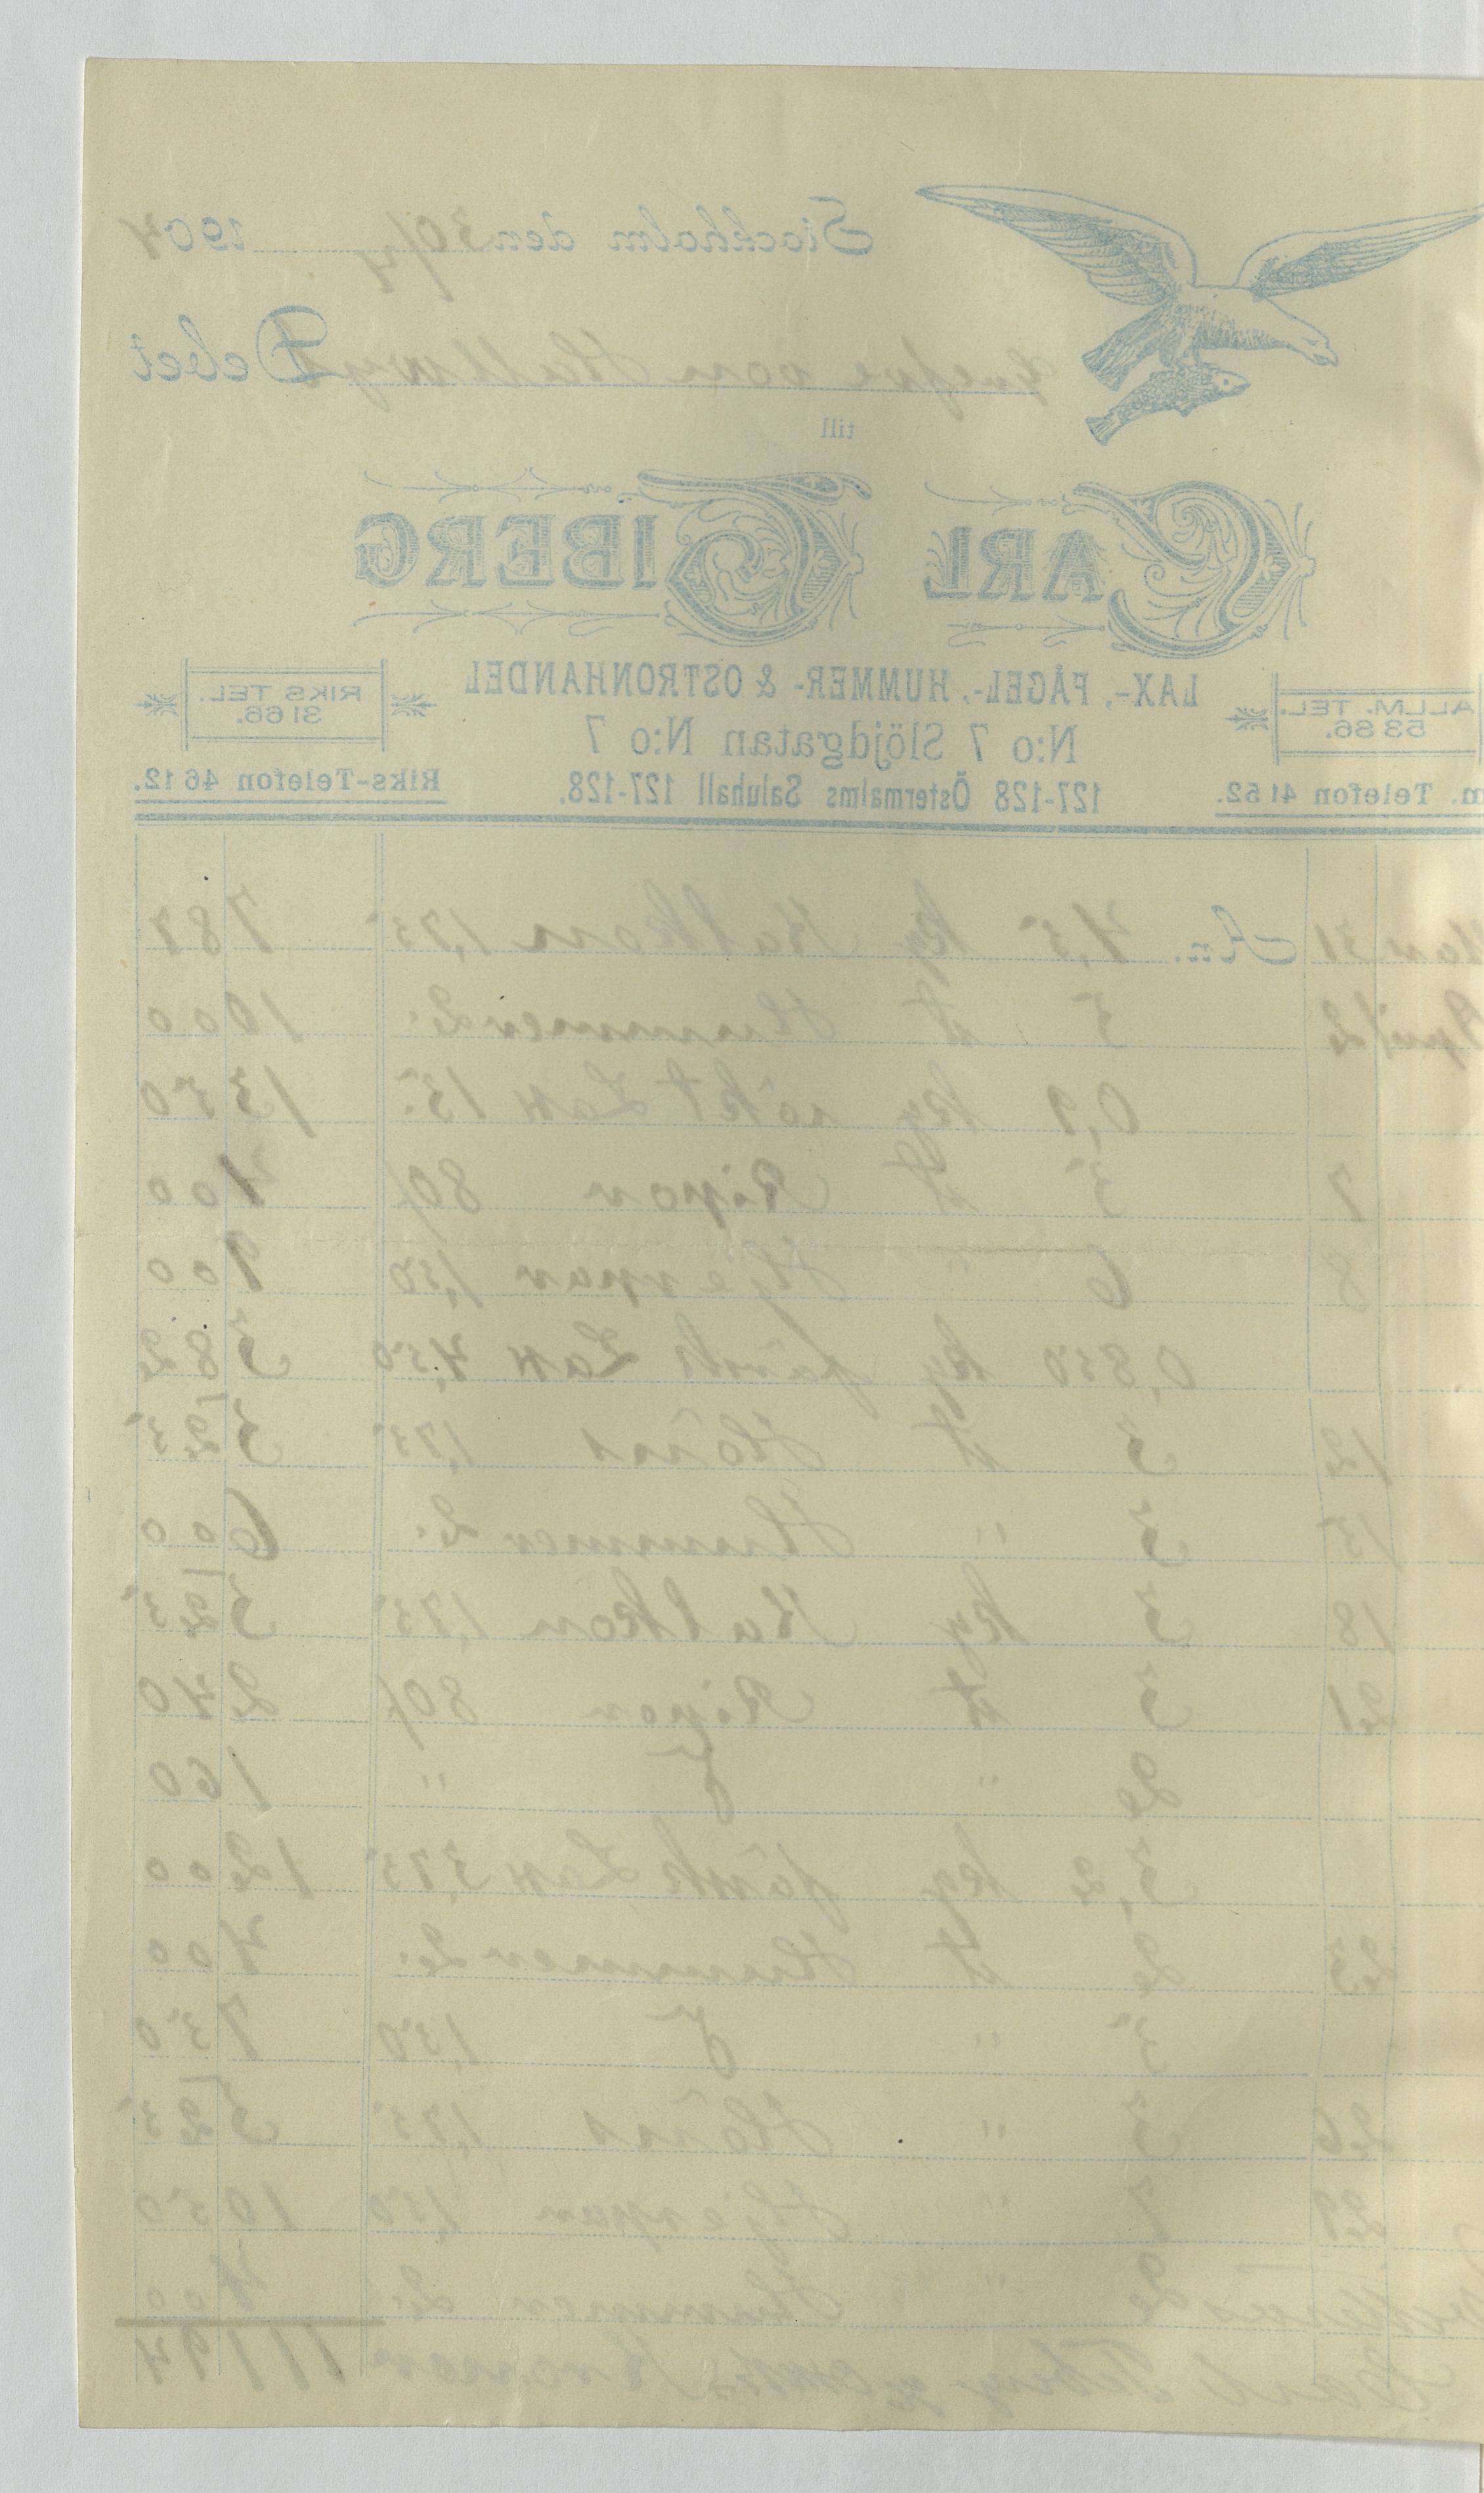 Stockholm den 30/4 1904
Grefve von Hallwyl Debet
till
CARL TIBERG
LAX-, FÅGEL-, HUMMER- & OSTRONHANDEL
ALLM. TEL. 53 86.
RIKS TEL. 31 66.
N:o 7 Slöjdgatan N:o 7
127-128 Östermalms Saluhall 127-128.
Telefon 41 52.
Riks-Telefon 46 12.
31 An. 4,5 kg Kalkon 1,75 7 87
April 2 5 st Hummer 2. 10 00
0,9 kg rökt Lax 15. 13 50
7 5 st Ripor 80/ 4 00
8 6 " Hjerpar 1,50 9 00
0,850 kg färsk Lax 4,50 3 82
12 3 st Höns 1,75 5 25
15 3 " Hummer 2. 6 00
18 3 kg Kalkon 1,75 5 25
21 3 st Ripor 80/ 2 40
2 " " 1 60
3,2 kg färsk Lax 3,75 12 00
23 2 st Hummer 2. 4 00
5 " 1,50 7 50
26 3 " Höns 1,75 5 25
29 7 " Hjerpar 1,50 10 50
2 " Hummer 2. 4 00
Carl Tiberg Kronor 111 94